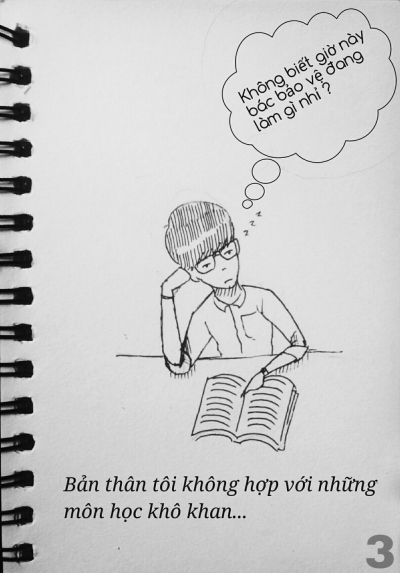 Không biết giờ này
bác bảo vệ đang
làm gì nhỉ ?
z z z
Bản thân tôi không hợp với những
môn học khô khan...
3